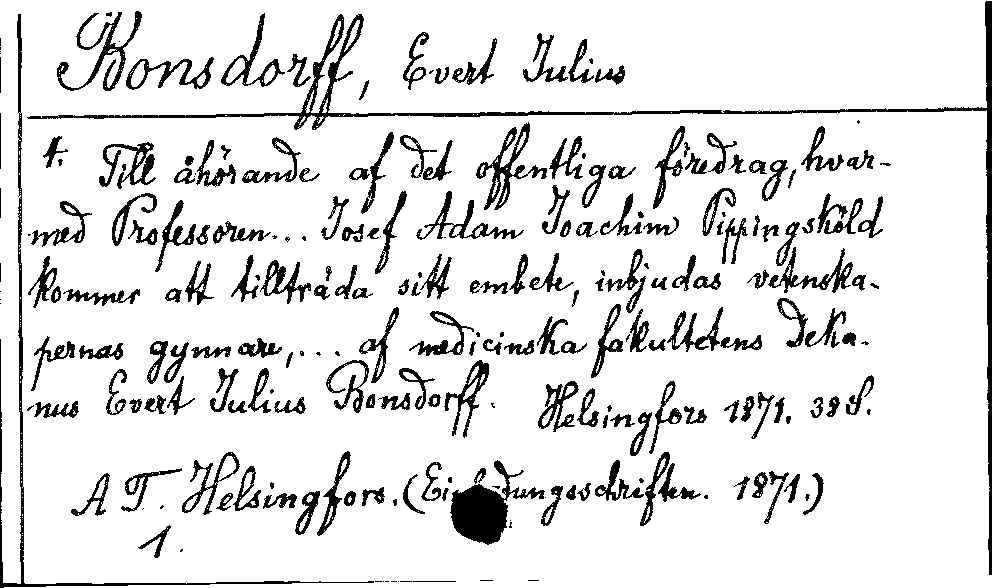 Bonsdorff, Evert Julius
1. Till åhörande af det offentliga föredrag, hvar-
med Professoren... Josef Adam Joachim Pippingsköld
kommer att tillträda sitt embete, inbjudas vetenska-
pernas gynnare,... af medicinska fakultetens Deka-
nus Evert Julius Bonsdorff. Helsingfors 1871. 38 S.
A T. Helsingfors. (Einladungsschriften. 1871.)
1.